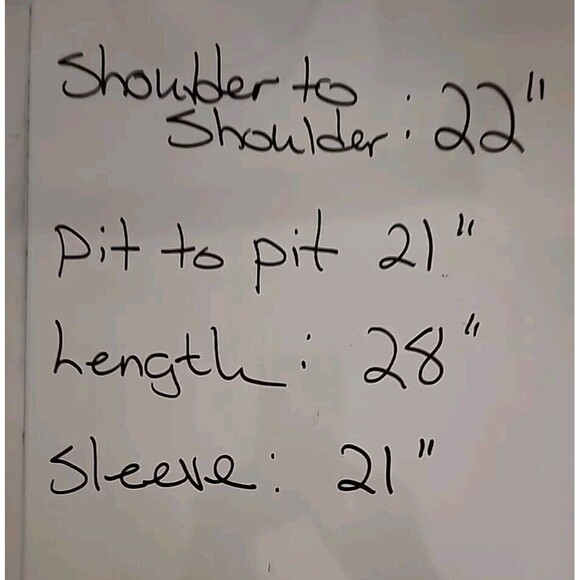 Shoulder to
Shoulder: 22"
pit to pit 21"
Length: 28"
Sleeve: 21"